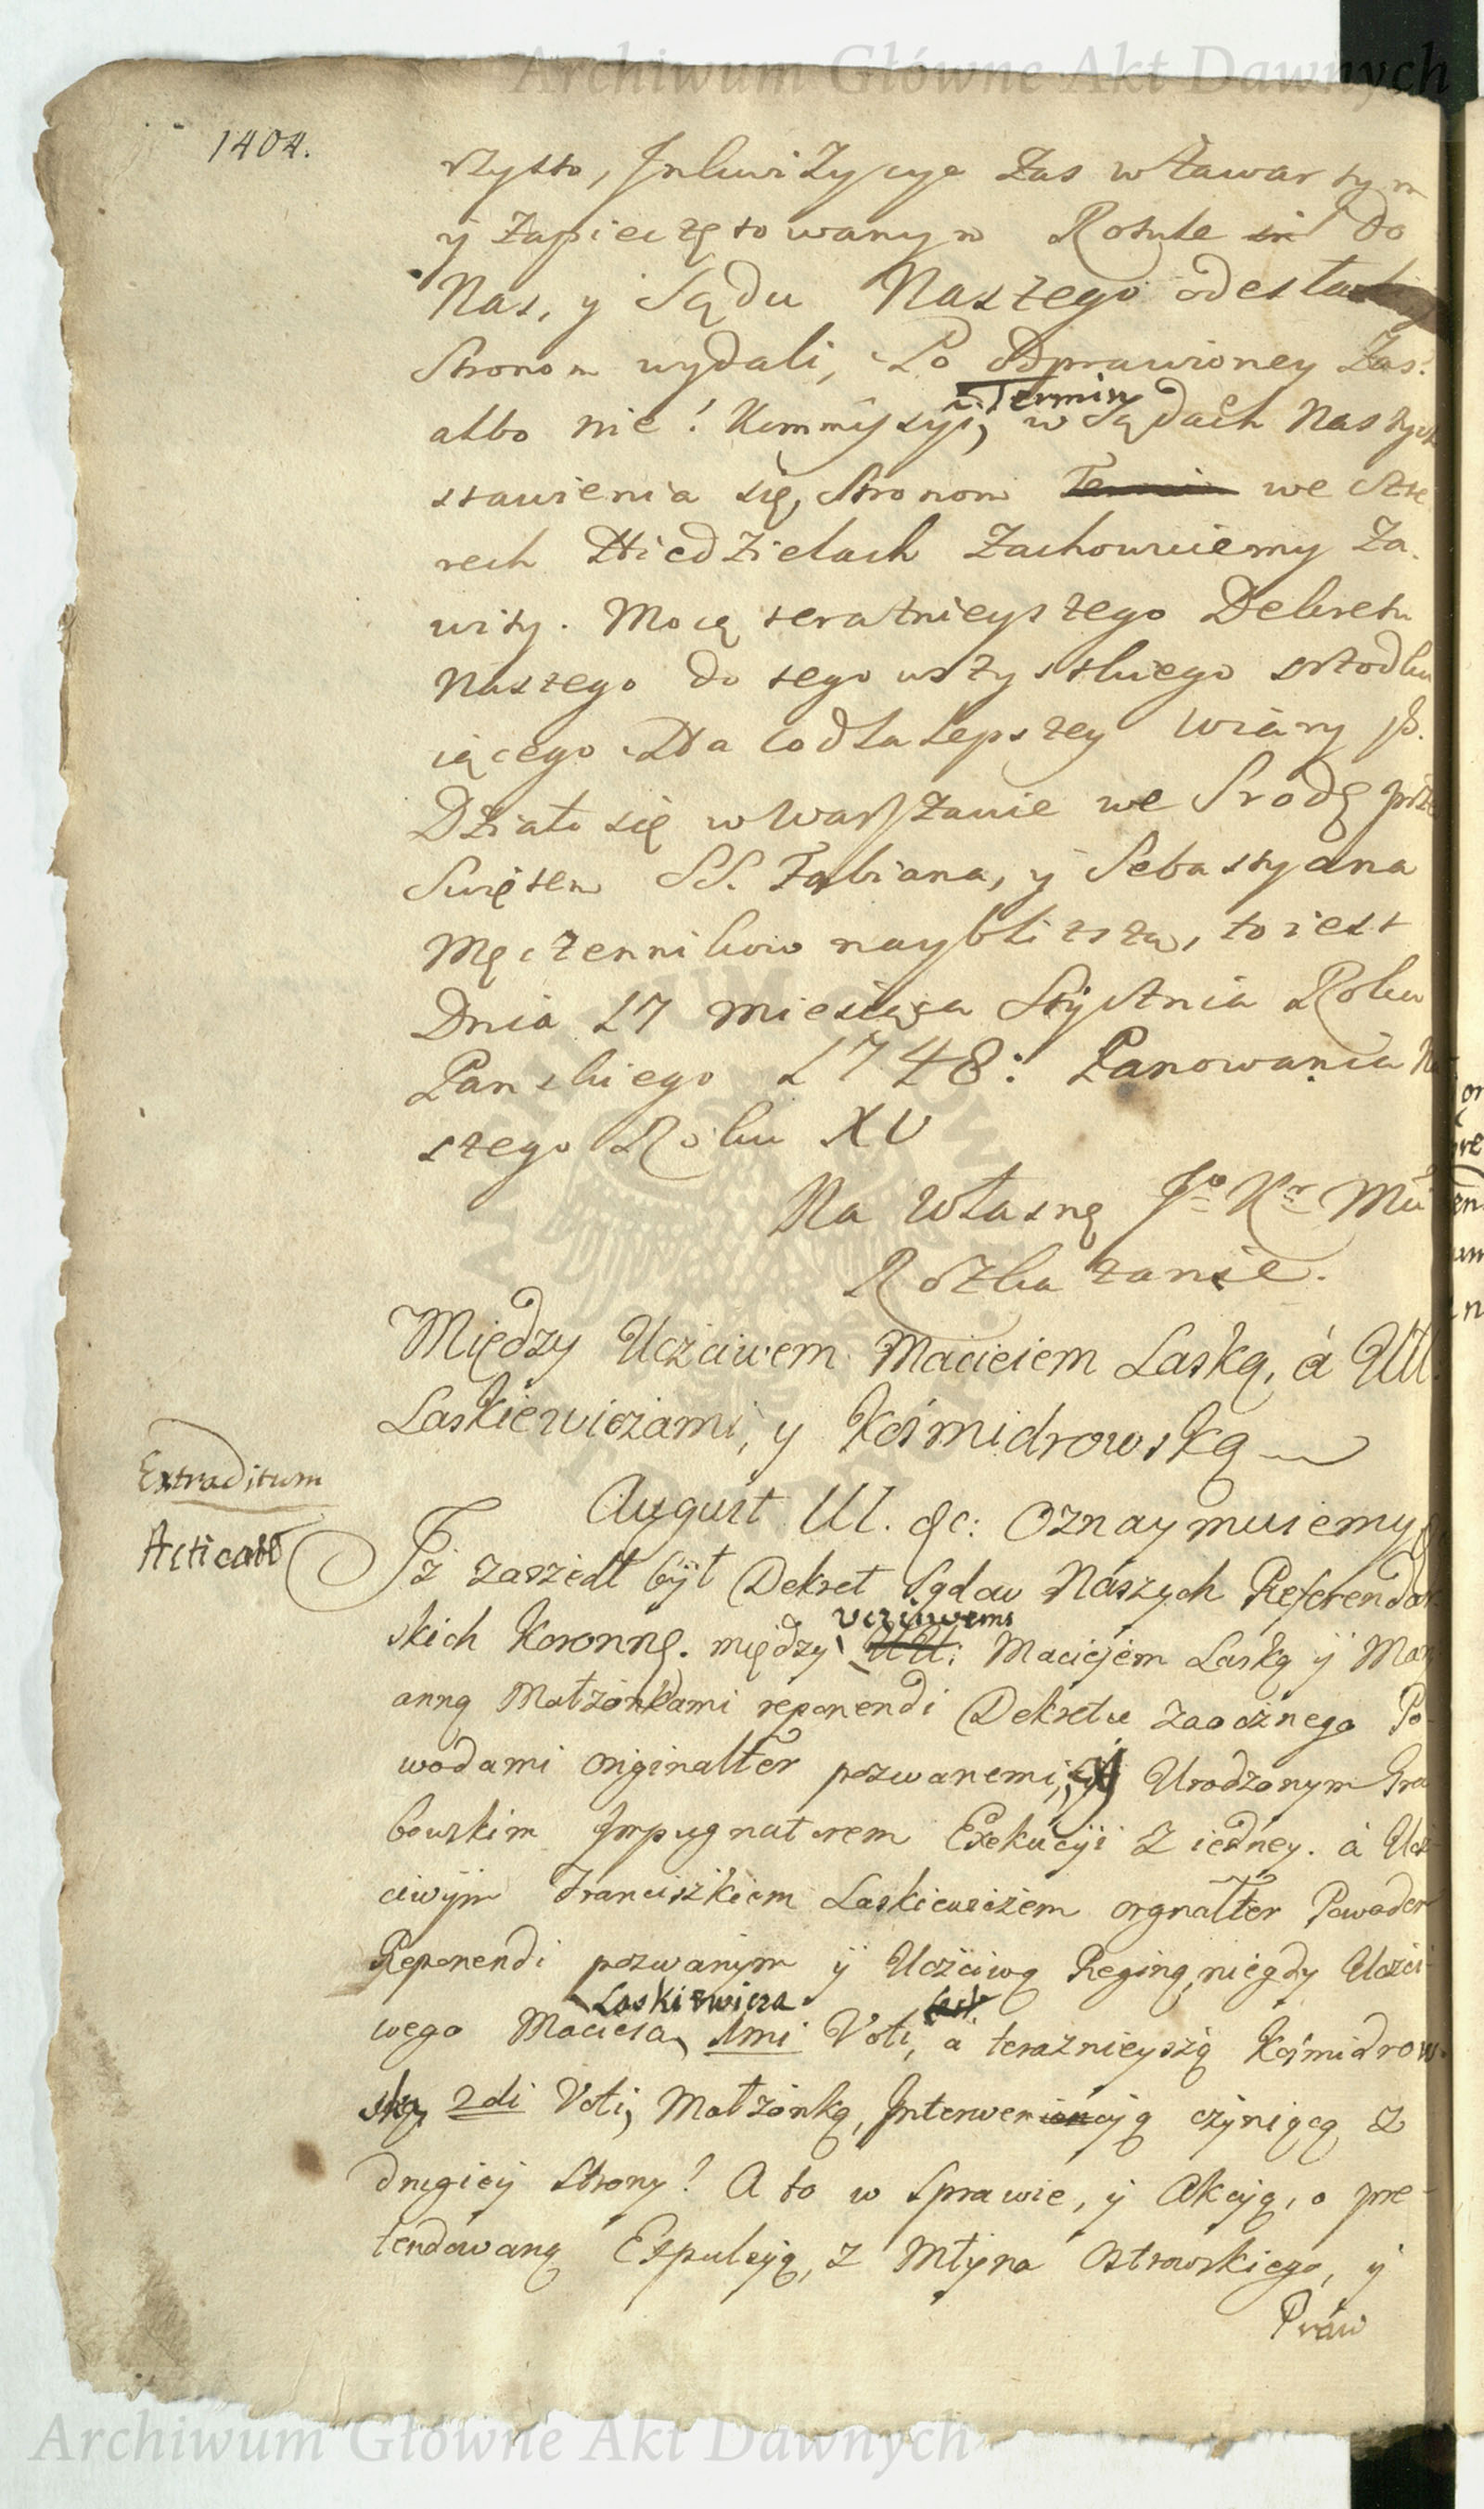 Archiwum Główne Akt Dawnych
1404.
rzysto, Inkwizycye zas w zawartym
y Zapieczętowanym Rotule do
Nas, y Sądu Naszego odesłan
Stronom wydali, Po odprawioney zas
albo nie! Kommissyi, Termin w Sądach Naszych
stawienia się, Stronom Termin we czte
rech Niedzielach Zachowuiemy Za-
wity. Mocą teraznieyszego Dekretu
Naszego do tego wszystkiego
iącego Na co dla lepszey wiary p.
Działo się w Warszawie we Srodę prze
Swiętem SS. Fabiana, y Sebastyana
Męczennikow naybliższą, to iest
Dnia 17 miesiąca Stycznia Roku
Panskiego 1748: Panowania Na
szego Roku XV
Na własne Jo Kr Mci
Rozkazanie.
Między Uczciwem Macieiem Laską, á UU.
Laskiewiczami, y Kośmidrowską
Extraditum
August III. &c: Oznaymuiemy
Acticatt
Iż zaszedł był Dekret Sądow Naszych Referendar
skich Koronne. między uczciwemi UU: Maciejem Laską y Mary
anną Małżonkami reponendi Dekretu zaocżnego Po-
wodami originalter pozwanemi, Urodzonym Gra
bowskim Impugnatorem Exekucyi z iedney. á Ucz
ciwym Franciszkiem Laskiewiczem orgnalter Powodem
Reponendi pozwanym y Uczciwą Reginą, niegdy Uczci-
wego Macieja Laskiewicza 1mi Voti, á teraznieyszą Kośmidrow-
ską 2di Voti, Małżonką, Interwencyą czyniącą z
drugiey strony! A to w Sprawie, y Akcyą, o pre-
tendowaną Expulsyą, z Młyna Ostrowskiego, y
Praw
Archiwum Główne Akt Dawnych